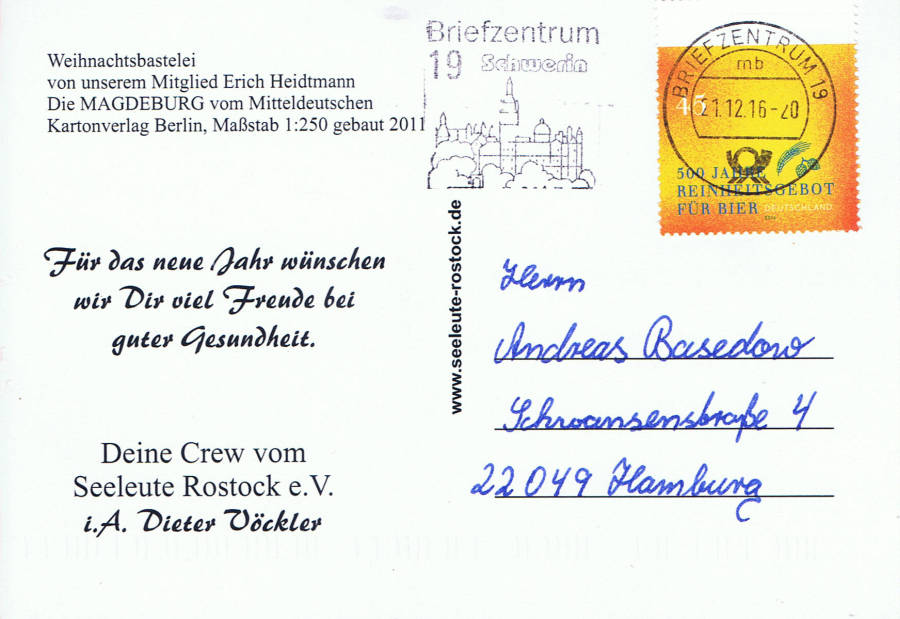 Weihnachtsbastelei
von unserem Mitglied Erich Heidtmann
Die MAGDEBURG vom Mitteldeutschen
Kartonverlag Berlin, Maßstab 1:250 gebaut 2011
Für das neue Jahr wünschen
wir Dir viel Freude bei
guter Gesundheit.
Deine Crew vom
Seeleute Rostock e.V.
i.A. Dieter Vöckler
www.seeleute-rostock.de
Briefzentrum
19 Schwerin
BRIEFZENTRUM 19
mb
21.12.16-20
45
500 JAHRE
REINHEITSGEBOT
FÜR BIER DEUTSCHLAND
Herrn
Andreas Basedow
Schwansenstraße 4
22049 Hamburg